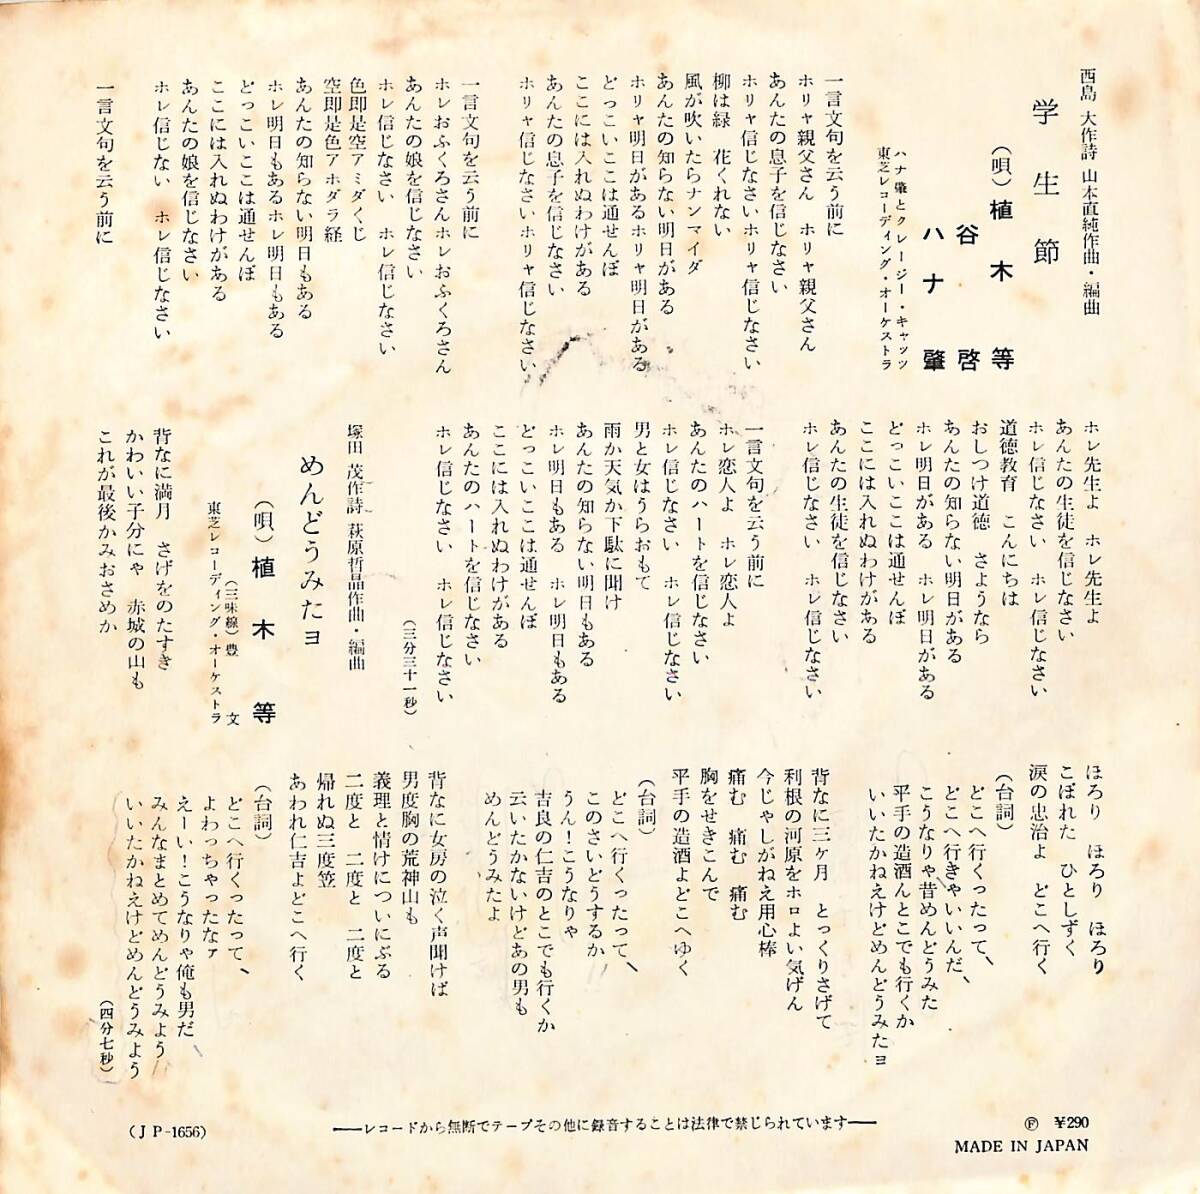 西島 大作詩 山本直純作曲・編曲
学生節
(唄) 植木 等
谷 啓
ハナ 肇
ハナ肇とクレージー・キャッツ
東芝レコーディング・オーケストラ
一言文句を云う前に
ホリャ親父さん ホリャ親父さん
あんたの息子を信じなさい
ホリャ信じなさいホリャ信じなさい
柳は緑 花くれない
風が吹いたらナンマイダ
あんたの知らない明日がある
ホリャ明日があるホリャ明日がある
どっこいここは通せんぼ
ここには入れぬわけがある
あんたの息子を信じなさい
ホリャ信じなさいホリャ信じなさい
一言文句を云う前に
ホレおふくろさんホレおふくろさん
あんたの娘を信じなさい
ホレ信じなさい ホレ信じなさい
色即是空アミダくじ
空即是色アホダラ経
あんたの知らない明日もある
ホレ明日もあるホレ明日もある
どっこいここは通せんぼ
ここには入れぬわけがある
あんたの娘を信じなさい
ホレ信じない ホレ信じなさい
一言文句を云う前に
ホレ先生よ ホレ先生よ
あんたの生徒を信じなさい
ホレ信じなさい ホレ信じなさい
道徳教育 こんにちは
おしつけ道徳 さようなら
あんたの知らない明日がある
ホレ明日がある ホレ明日がある
どっこいここは通せんぼ
ここには入れぬわけがある
あんたの生徒を信じなさい
ホレ信じなさい ホレ信じなさい
一言文句を云う前に
ホレ恋人よ ホレ恋人よ
あんたのハートを信じなさい
ホレ信じなさい ホレ信じなさい
男と女はうらおもて
雨か天気か下駄に聞け
あんたの知らない明日もある
ホレ明日もある ホレ明日もある
どっこいここは通せんぼ
ここには入れぬわけがある
あんたのハートを信じなさい
ホレ信じなさい ホレ信じなさい
(三分三十一秒)
塚田 茂作詩 萩原哲晶作曲・編曲
めんどうみたヨ
(唄) 植木 等
(三味線) 豊 文
東芝レコーディング・オーケストラ
背なに満月 さげをのたすき
かわいい子分にゃ 赤城の山も
これが最後かみおさめか
ほろり ほろり ほろり
こぼれた ひとしずく
涙の忠治よ どこへ行く
(台詞)
どこへ行くったって、
どこへ行きゃいいんだ、
こうなりゃ昔めんどうみた
平手の造酒んとこでも行くか
いいたかねえけどめんどうみたヨ
背なに三ヶ月 とっくりさげて
利根の河原をホロよい気げん
今じゃしがねえ用心棒
痛む 痛む 痛む
胸をせきこんで
平手の造酒よどこへゆく
(台詞)
どこへ行くったって、
このさいどうするか
うん!こうなりゃ
吉良の仁吉のとこでも行くか
云いたかないけどあの男も
めんどうみたよ
背なに女房の泣く声聞けば
男度胸の荒神山も
義理と情けについにぶる
二度と 二度と 二度と
帰れぬ三度笠
あわれ仁吉よどこへ行く
(台詞)
どこへ行くったって、
よわっちゃったなァ
えーい!こうなりゃ俺も男だ
みんなまとめてめんどうみよう
いいたかねえけどめんどうみよう
(四分七秒)
(JP-1656)
――レコードから無断でテープその他に録音することは法律で禁じられています――
Ⓕ ¥290
MADE IN JAPAN